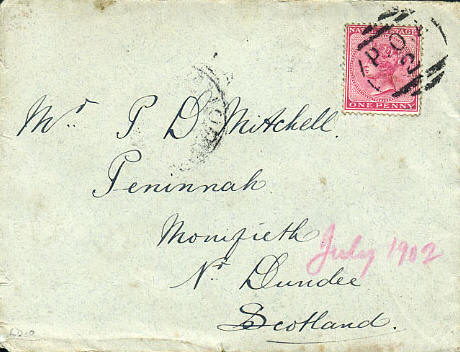 NATAL POSTAGE
ONE PENNY
P.O.
Mrs P D Mitchell.
Peninnah
Monifieth
Nr Dundee
Scotland.
July 1902